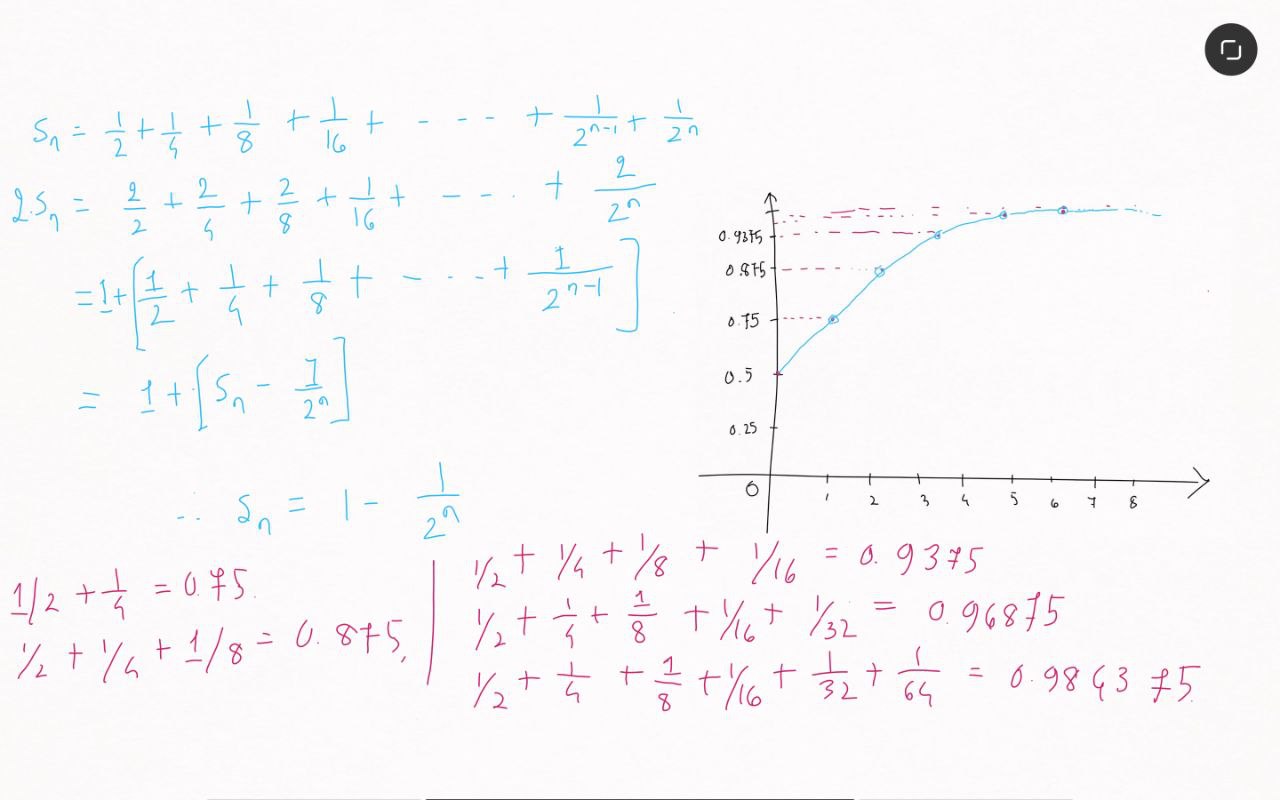 Sn = 1/2 + 1/4 + 1/8 + 1/16 + - - - + 1/2^(n-1) + 1/2^n
2.Sn = 2/2 + 2/4 + 2/8 + 1/16 + - - - + 2/2^n
= 1 + [1/2 + 1/4 + 1/8 + - - - + 1/2^(n-1)]
= 1 + [Sn - 1/2^n]
∴ Sn = 1 - 1/2^n
0.9375
0.875
0.75
0.5
0.25
0
1 2 3 4 5 6 7 8
1/2 + 1/4 = 0.75.
1/2 + 1/4 + 1/8 = 0.875,
1/2 + 1/4 + 1/8 + 1/16 = 0.9375
1/2 + 1/4 + 1/8 + 1/16 + 1/32 = 0.96875
1/2 + 1/4 + 1/8 + 1/16 + 1/32 + 1/64 = 0.984375